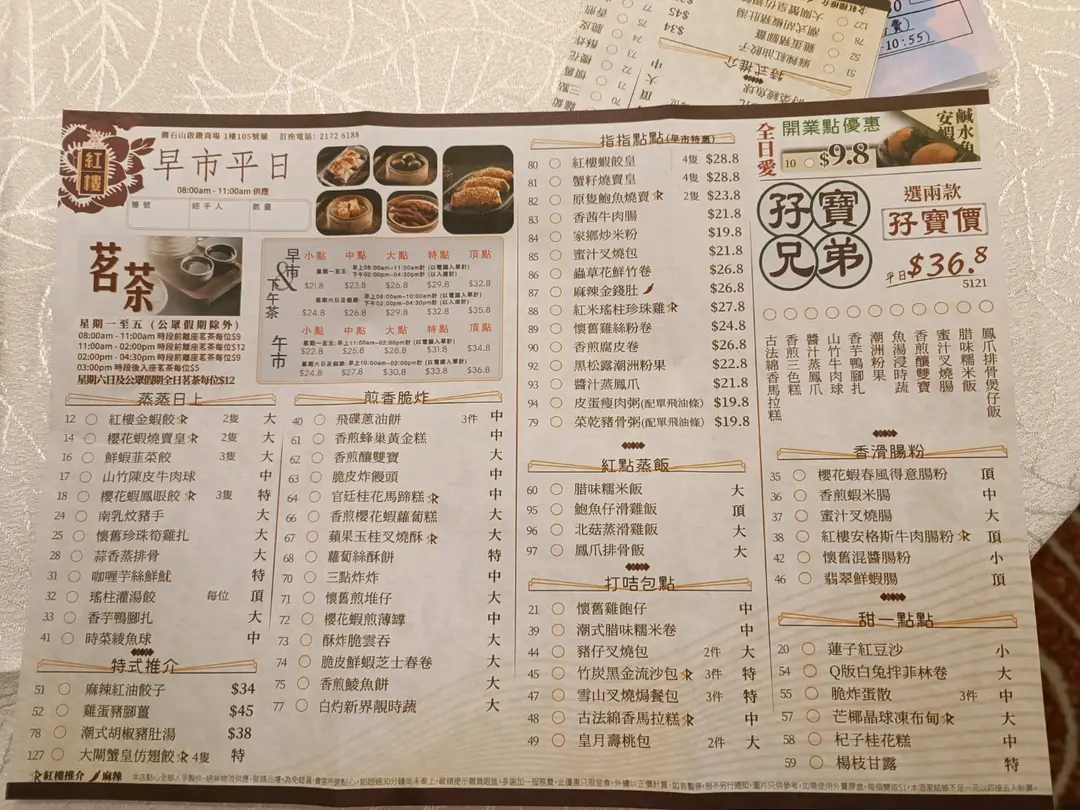 紅樓
鑽石山啟鑽商場 1樓105號舖 訂座電話: 2172 6188
早市平日
08:00am - 11:00am 供應
檯號 經手人 數量
茗茶
星期一至五 (公眾假期除外)
08:00am - 11:00am 時段前離座茗茶每位$9
11:00am - 02:00pm 時段前離座茗茶每位$12
02:00pm - 04:30pm 時段前離座茗茶每位$9
03:00pm 時段後入座茗茶每位$5
星期六日及公眾假期全日茗茶每位$12
早市&下午茶
小點 中點 大點 特點 頂點
星期一至五: 早上08:00am~11:00am計 (以電腦入單計)
下午02:00pm~04:30pm計 (以入座計)
$21.8 $23.8 $26.8 $29.8 $32.8
星期六日及假期: 早上08:00am~10:00am計 (以電腦入單計)
下午02:00pm~04:30pm計 (以入座計)
$24.8 $26.8 $29.8 $32.8 $35.8
午市
小點 中點 大點 特點 頂點
星期一至五: 早上11:00am~02:00pm計 (以電腦入單計)
$22.8 $25.8 $28.8 $31.8 $34.8
星期六日及假期: 早上10:00am~02:00pm計 (以電腦入單計)
$24.8 $27.8 $30.8 $33.8 $36.8
蒸蒸日上
12 紅樓金蝦餃 2隻 大
14 櫻花蝦燒賣皇 2隻 大
16 鮮蝦韮菜餃 3隻 大
17 山竹陳皮牛肉球 中
18 櫻花蝦鳳眼餃 3隻 特
24 南乳炆豬手 大
25 懷舊珍珠筍雞扎 大
28 蒜香蒸排骨 大
31 咖喱芋絲鮮魷 特
32 瑤柱灌湯餃 每位 頂
33 香芋鴨腳扎 大
41 時菜綾魚球 中
特式推介
51 麻辣紅油餃子 $34
52 雞蛋豬腳薑 $45
78 潮式胡椒豬肚湯 $38
127 大閘蟹皇仿翅餃 4隻 特
煎香脆炸
40 飛碟蔥油餅 3件 中
61 香煎蜂巢黃金糕 中
62 香煎釀雙寶 大
63 脆皮炸饅頭 中
64 官廷桂花馬蹄糕 中
66 香煎櫻花蝦蘿蔔糕 大
67 蘋果玉桂叉燒酥 大
68 蘿蔔絲酥餅 特
70 三點炸炸 中
71 懷舊煎堆仔 大
72 櫻花蝦煎薄罉 中
73 酥炸脆雲吞 大
74 脆皮鮮蝦芝士春卷 大
75 香煎鯪魚餅 大
77 白灼新界靚時蔬 大
指指點點(早市特惠)
80 紅樓蝦餃皇 4隻 $28.8
81 蟹籽燒賣皇 4隻 $28.8
82 原隻鮑魚燒賣 2隻 $23.8
83 香茜牛肉腸 $21.8
84 家鄉炒米粉 $19.8
85 蜜汁叉燒包 $21.8
86 蟲草花鮮竹卷 $26.8
87 麻辣金錢肚 $26.8
88 紅米瑤柱珍珠雞 $27.8
89 懷舊雞絲粉卷 $24.8
90 香煎腐皮卷 $26.8
92 黑松露潮洲粉果 $22.8
93 醬汁蒸鳳爪 $21.8
94 皮蛋瘦肉粥(配單飛油條) $19.8
79 菜乾豬骨粥(配單飛油條) $19.8
紅點蒸飯
60 腊味糯米飯 大
95 鮑魚仔滑雞飯 頂
96 北菇蒸滑雞飯 大
97 鳳爪排骨飯 大
打咭包點
21 懷舊雞飽仔 中
39 潮式腊味糯米卷 中
44 豬仔叉燒包 2件 大
45 竹炭黑金流沙包 3件 特
47 雪山叉燒焗餐包 3件 特
48 古法綿香馬拉糕 中
49 皇月壽桃包 2件 大
全日愛
開業點優惠
10 $9.8
鹹水角
安蝦
孖寶兄弟
選兩款
孖寶價
平日$36.8
5121
鳳爪排骨煲仔飯
腊味糯米飯
蜜汁叉燒腸
香煎釀雙寶
魚湯浸時蔬
潮洲粉果
香芋鴨腳扎
山竹牛肉球
醬汁蒸鳳爪
香煎三色糕
古法綿香馬拉糕
香滑腸粉
35 櫻花蝦春風得意腸粉 頂
36 香煎蝦米腸 中
37 蜜汁叉燒腸 大
38 紅樓安格斯牛肉腸粉 頂
42 懷舊混醬腸粉 小
46 翡翠鮮蝦腸 頂
甜一點點
20 蓮子紅豆沙 小
54 Q版白兔拌菲林卷 大
55 脆炸蛋散 3件 中
57 芒椰晶球凍布甸 大
58 杞子桂花糕 中
59 楊枝甘露 特
紅樓推介 麻辣
127 大閘蟹皇仿翅餃
78 潮式胡椒豬肚湯
52 雞蛋豬腳薑
51 麻辣紅油餃子
特式推介
$34
$45
-10:55)